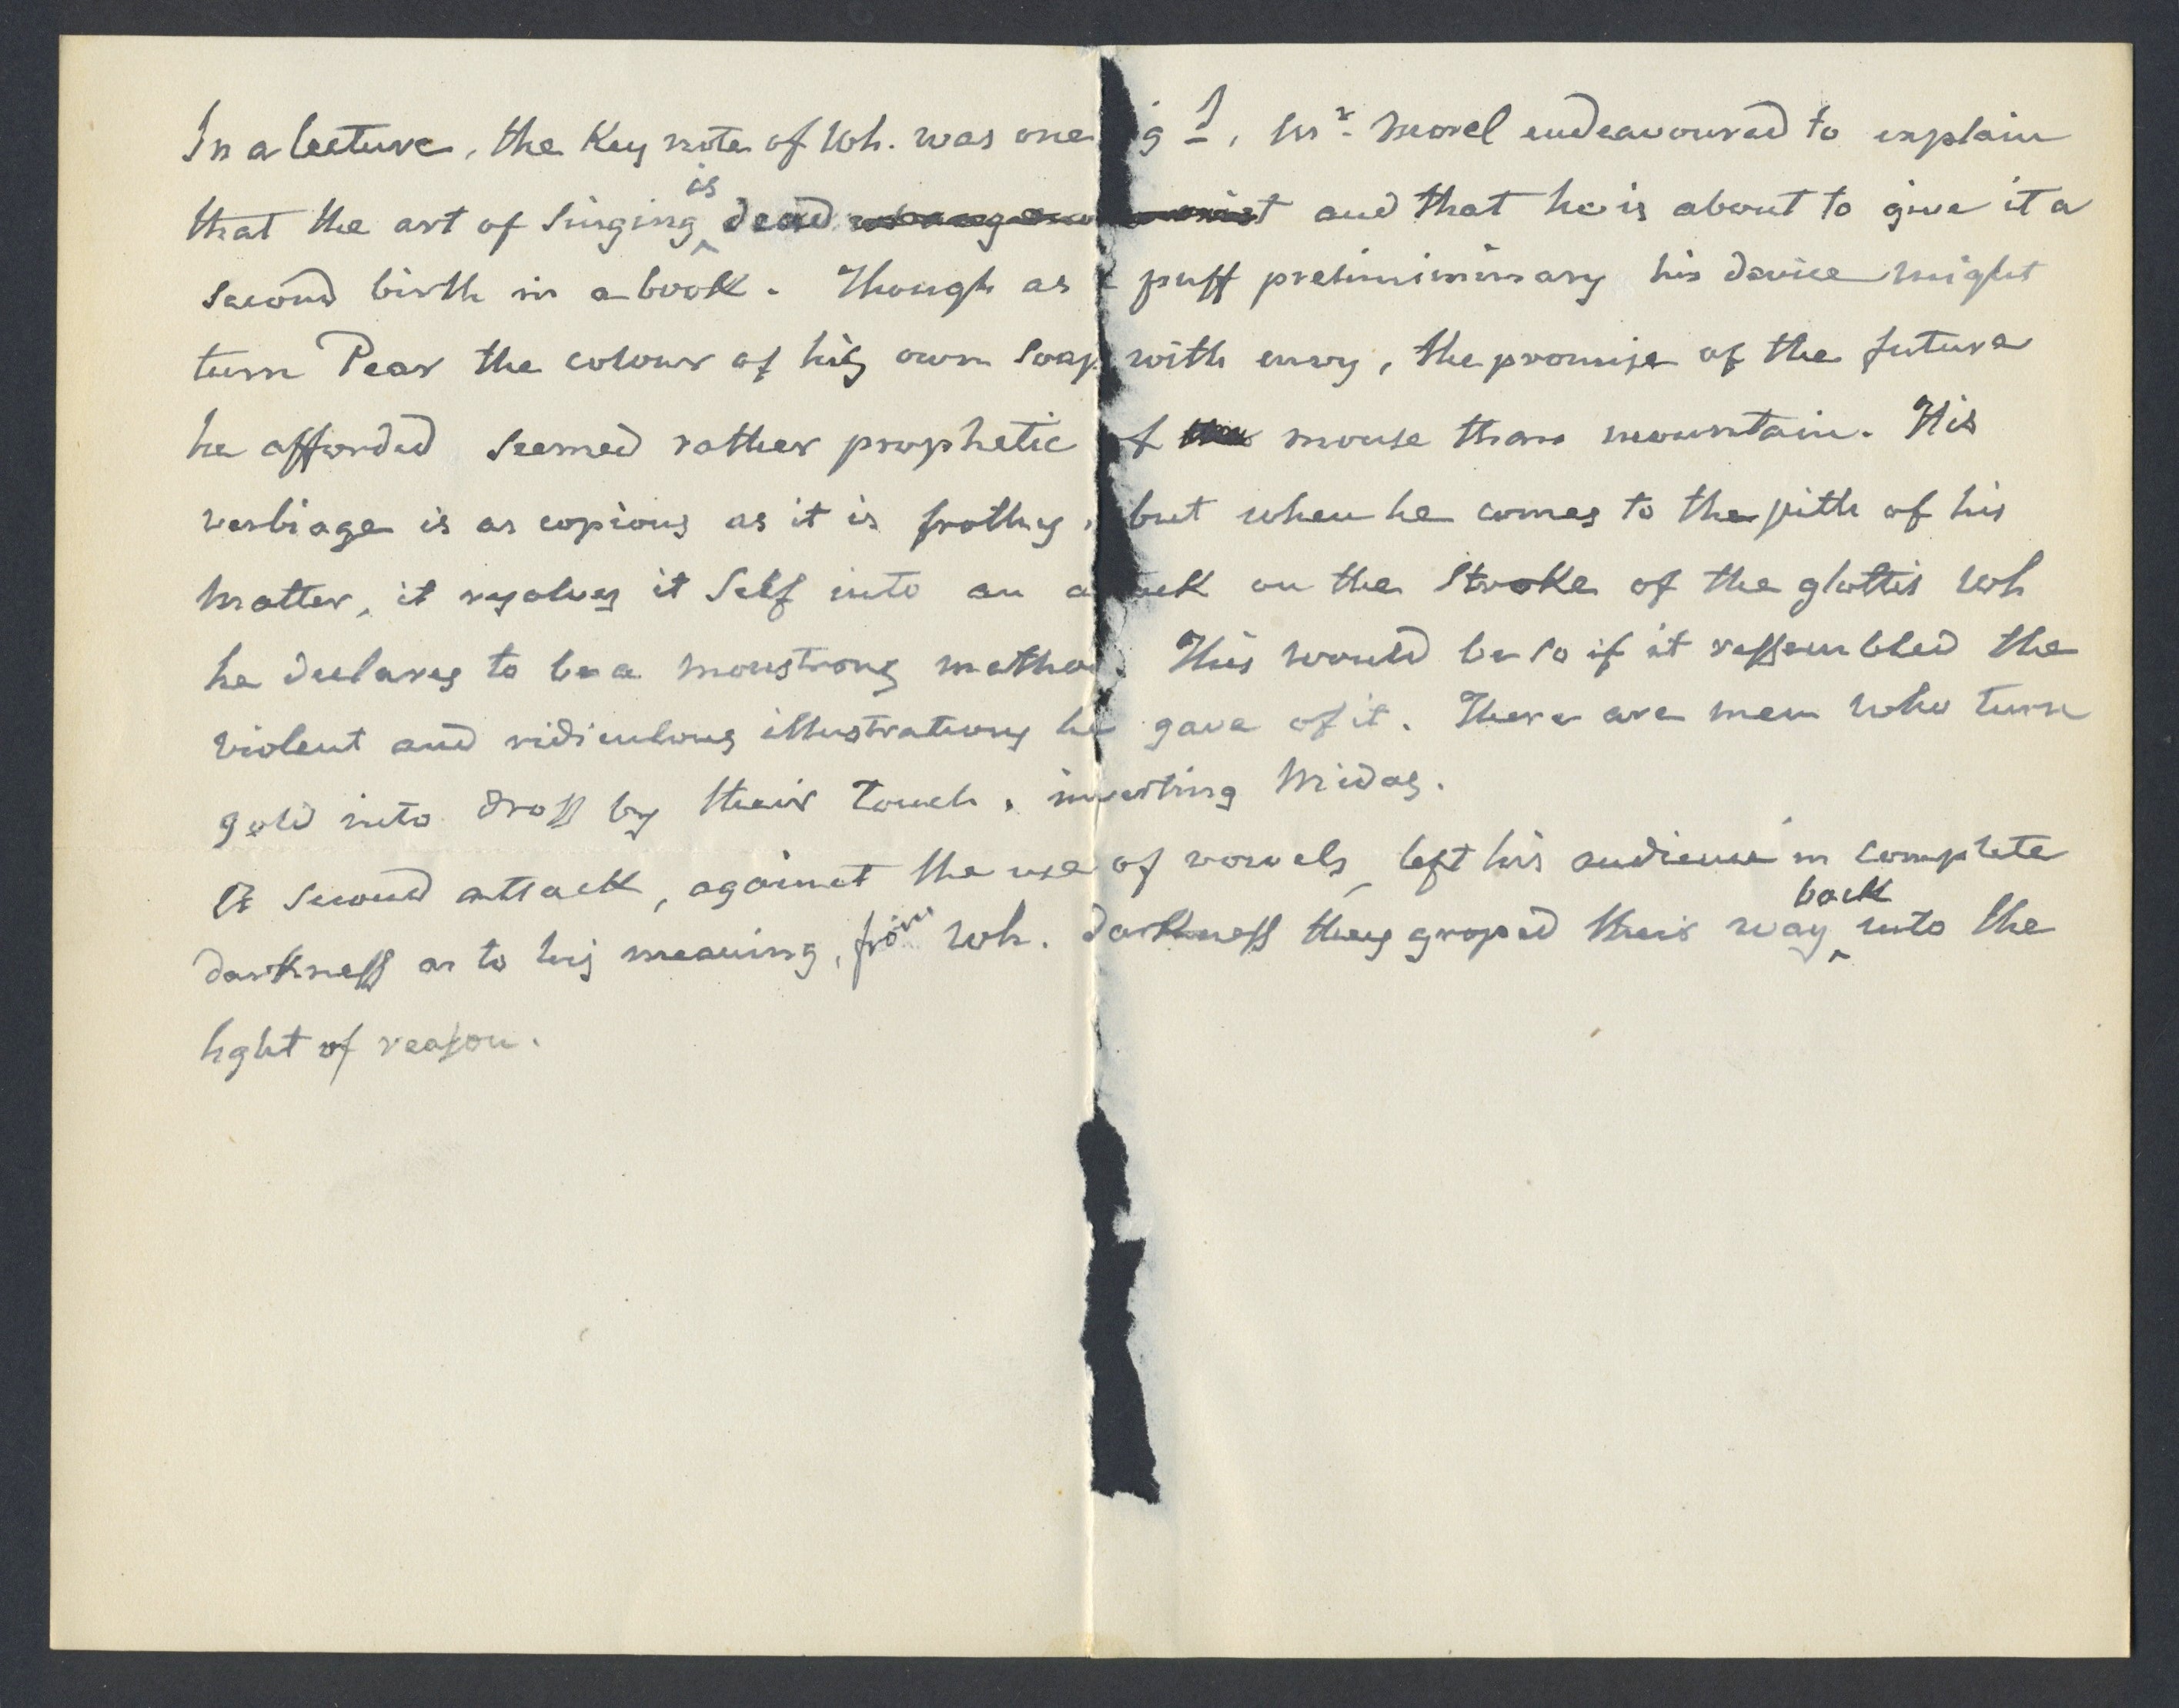 In a lecture, the Key note of wh. was one g I, Mr. Morel endeavoured to explain
that the art of singing is dead and that he is about to give it a
second birth in a book. Though as a puff preliminimary his device might
turn Pear the colour of his own soap with envy, the promise of the future
he afforded seemed rather prophetic of mouse than mountain. His
verbiage is as copious as it is frothy, but when he comes to the pith of his
matter, it resolves it self into an attack on the stroke of the glottis wh
he declares to be a monstrous method. This would be so if it ressembled the
violent and ridiculous illustrations he gave of it. There are men who turn
gold into dross by their touch, inverting Midas.
A second attack, against the use of vowels, left his audience in complete
darkness as to his meaning, from wh. darkness they groped their way back into the
light of reason.